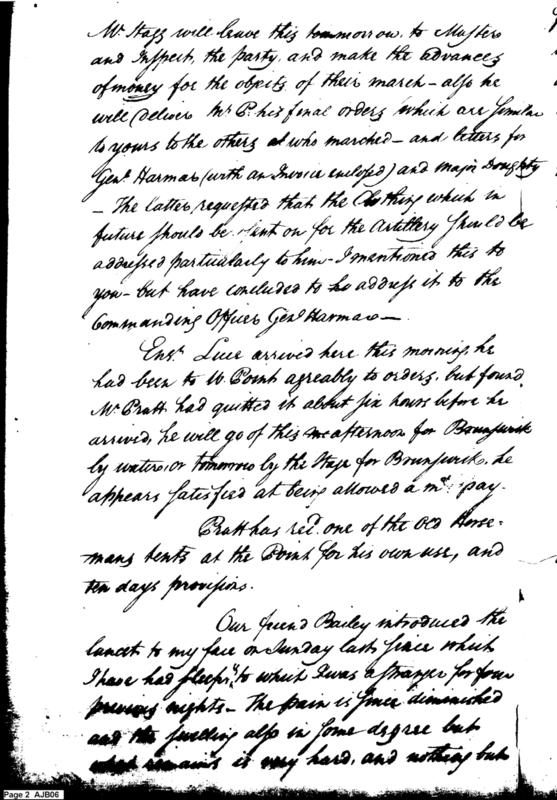 Mr Stagg will leave this tommorrow, to Muster
and Inspect, the party, and make the advances
of money for the objects of their march – also he
will deliver Mr P. his final orders which are similar
to yours to the others who marched – and letters for
Genl Harmar (with an Invoice enclosed) and major Doughty
– The latter requested that the Clothing which in
future should be sent on for the Artillery should be
addressed particularly to him – I mentioned this to
you – but have concluded to address it to the
Commanding Officer Genl Harmar –
Ensn Luce arrived here this morning, he
had been to W. Point agreably to orders, but found
Mr Pratt had quitted it about six hours before he
arrived, he will go of this afternoon for Brunswick
by water, or tomorrow by the Stage for Brunswick. he
appears satisfied at being allowed a mo pay –
Pratt has recd one of the Old Horse-
mans tents at the Point for his own use, and
ten days provisions.
Our friend Bailey introduced the
lancet to my face on Sunday last, since which
I have had sleep, to which I was a stranger for four
previous nights – The pain is since diminished
and the swelling also in some degree but
what remains is very hard, and nothing but
Page 2 AJB06